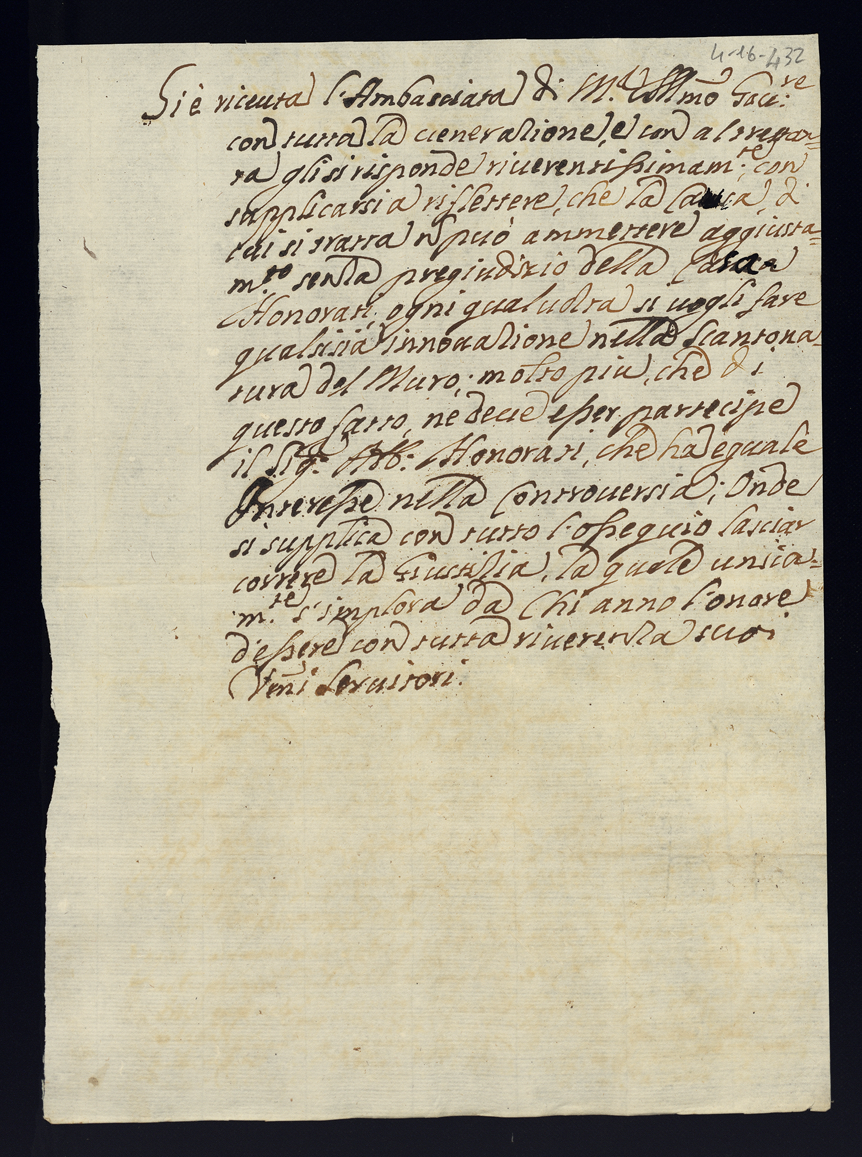 4-16-432
Si è riceuta l'Ambasciata di M.r Ill.mo Gou.re
con tutta la uenerazione, e con altrettan=
ta gli si risponde riuerentissimam.te, con
supplicarsi a riflettere, che la Causa, di
cui si tratta ñ può ammettere aggiusta=
m.to senza pregiudizio della Casa
Honorati, ogni qual uolta si uogli fare
qualsisia innouazione nella Scantona=
tura del Muro; molto più, che di
questo fatto, ne deue esser partecipe
il Sig.r Abb.e Honorati, che ha eguale
Interesse nella Controuersia; Onde
si supplica con tutto l'ossequio lasciar
correre la Giustizia, la quale unica=
m.te s'implora da chi anno l'onore
d'essere con tutta riuerenza suoi
Vm̃i Seruitori.